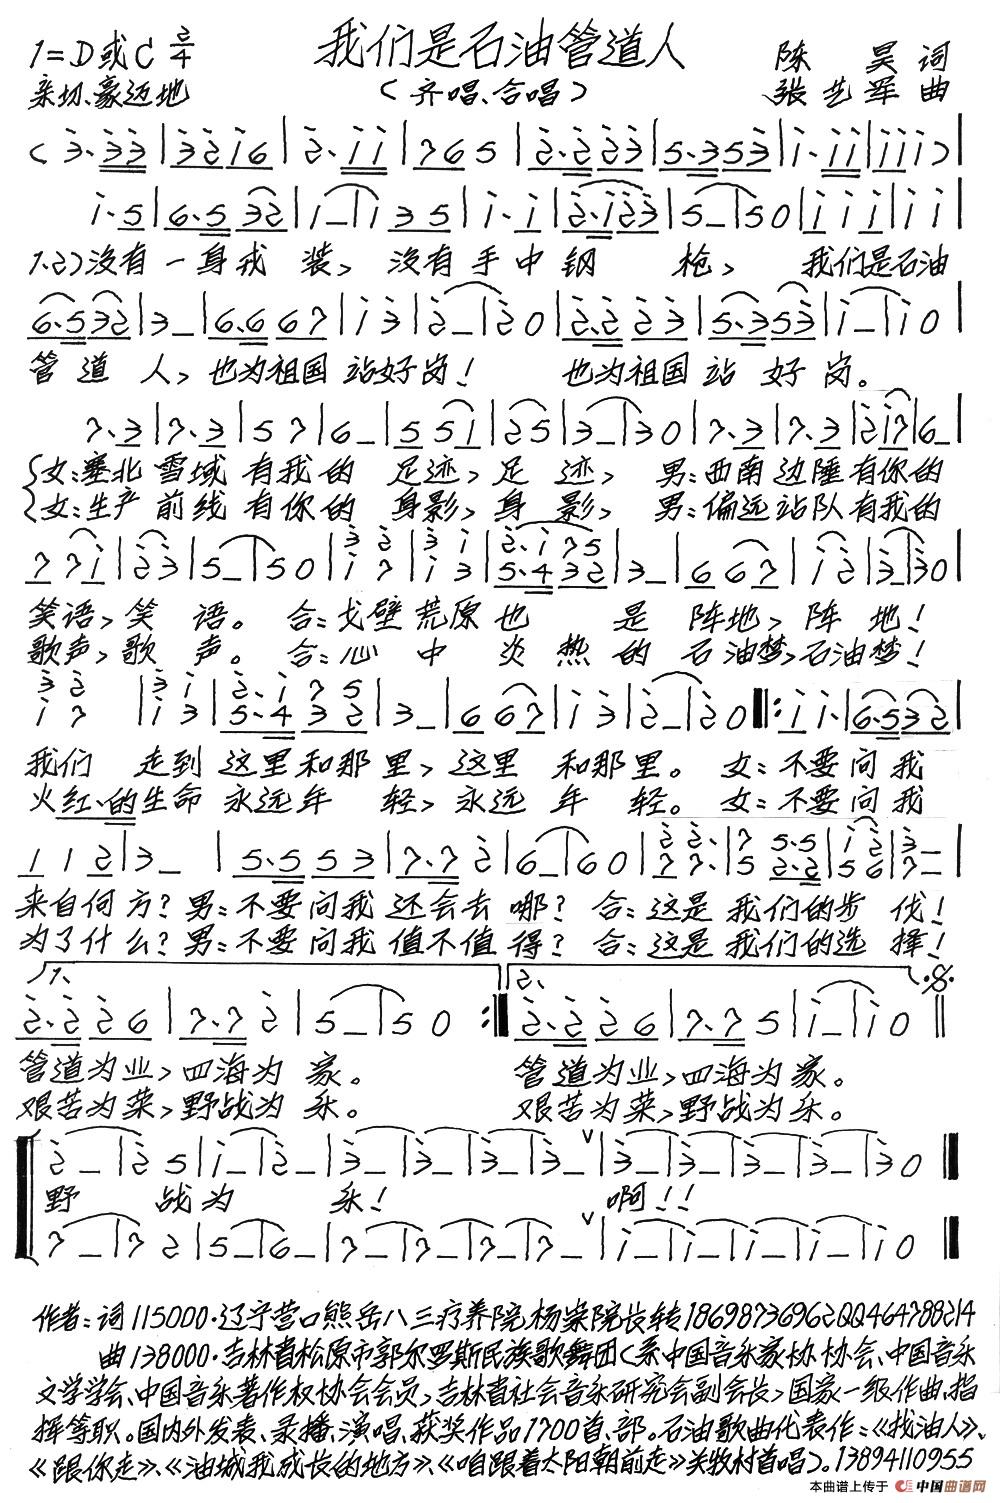 我们是石油管道人
1=D或C 2/4
陈昊词
亲切、豪迈地
(齐唱、合唱)
张艺军曲
(3·33|3216|2·11|765|2·223|5·353|1·11|111)|
1·5|6·532|1_|135|1·1|2·123|5_|50|111|11|
1.2)没有一身戎装,没有手中钢枪,我们是石油
6·532|3_|6·667|13|2_|20|2·223|5·353|1_|10|
管道人,也为祖国站好岗!也为祖国站好岗。
7·3|7·3|57|6_|551|25|3_|30|7·3|7·3|217|6_|
女:塞北雪域有我的足迹,足迹,男:西南边陲有你的
女:生产前线有你的身影,身影,男:偏远站队有我的
32 31 2·175
771|23|5_|50|17|13|5·432|3_|667|12|3_|30|
笑语,笑语。合:戈壁荒原也是阵地,阵地!
歌声,歌声。合:心中炎热的石油梦,石油梦!
32 31 2·175
17|13|5·432|3_|667|13|2_|20:11·|6·532|
我们走到这里和那里,这里和那里。女:不要问我
火红、的生命永远年轻,永远年轻。女:不要问我
22·7 5·5 12 3
112|3_|5·553|7·72|6_|60|77·5 2·2|56|7_|
来自何方?男:不要问我还会去哪?合:这是我们的步伐!
为了什么?男:不要问我值不值得?合:这是我们的选择!
1. 2.
2·226|7·72|5_|50:2·226|7·75|1_|10
管道为业,四海为家。管道为业,四海为家。
艰苦为荣,野战为乐。艰苦为荣,野战为乐。
2_|25|1_|2_|3_|3_|3_|3_|3_|3_|3_|3_|30
野战为乐!啊!!
7_|72|5_|6_|7_|7_|7_|7_|1_|1_|1_|1_|10
作者:词115000·辽宁营口熊岳八三疗养院杨案院长转18698736962QQ464788214
曲138000·吉林省松原市郭尔罗斯民族歌舞团(系中国音乐家协协会、中国音乐
文学学会、中国音乐著作权协会会员,吉林省社会音乐研究会副会长,国家一级作曲、指
挥等职。国内外发表、录播、演唱、获奖作品1700首、部。石油歌曲代表作:《找油人》、
《跟你走》、《油城我成长的地方》、《咱跟着太阳朝前走》关牧村首唱)。13894110955
本曲谱上传于 中国曲谱网